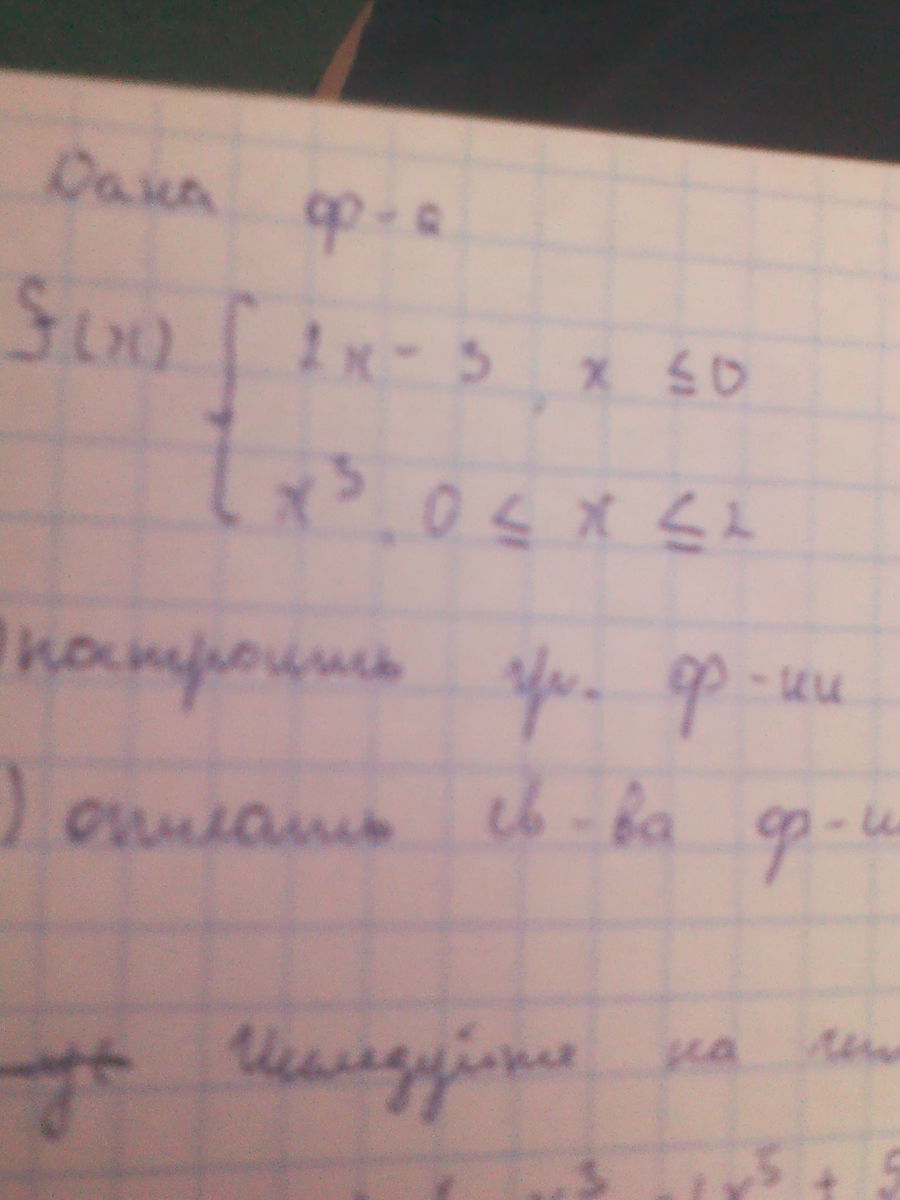 Дана ф-я
f(x) { 2x - 3, x ≤ 0
x³, 0 ≤ x ≤ 2
) построить гр. ф-ии
) описать св-ва ф-и
Исследуйте на